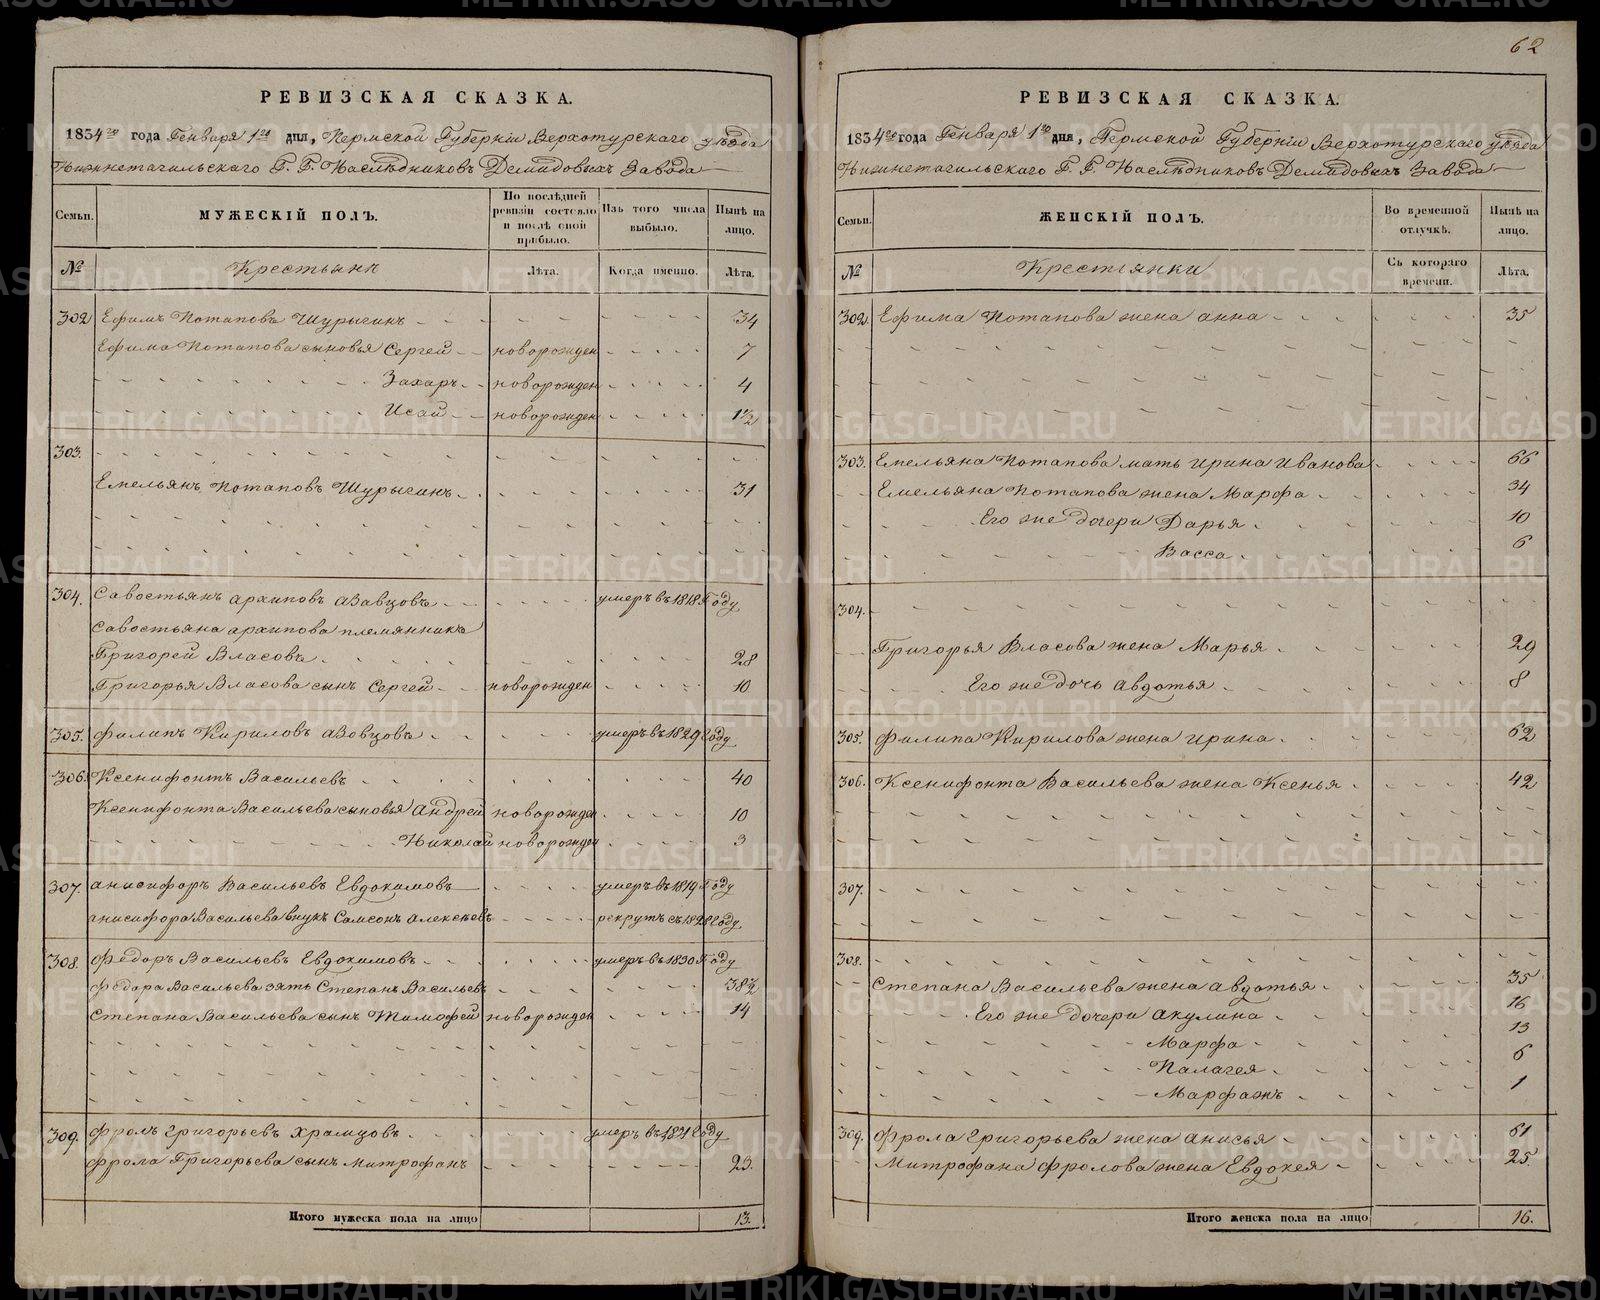 РЕВИЗСКАЯ СКАЗКА.
1834го года Генваря 1го дня, Пермской Губернiи Верхотурскаго уѣзда
Нижнетагильскаго Г. Г. Наслѣдниковъ Демидовыхъ Завода
Семьи. МУЖЕСКIЙ ПОЛЪ. По послѣдней ревизiи состояло и послѣ оной прибыло. Изъ того числа выбыло. Нынѣ на лицо.
№ Крестьянъ Лѣта. Когда именно. Лѣта.
302 Ефимъ Потаповъ Шурыгинъ 34
Ефима Потапова сыновья Сергей новорожден 7
Захаръ новорожден 4
Исай новорожден 1½
303.
Емельянъ Потаповъ Шурыгинъ 31
304. Савостьянъ архиповъ аЗавцовъ умеръ въ 1818 Году
Савостьяна архипова племянникъ
Григорей Власовъ 28
Григорья Власова сынъ Сергей новорожден 10
305. филипъ Кириловъ аЗовцовъ умеръ въ 1829 Году
306. Ксенифонтъ Васильевъ 40
Ксенифонта Васильева сыновья Андрей новорожден 10
Николай новорожден 3
307. анисифоръ Васильевъ Евдокимовъ умеръ въ 1819 Году
анисифора Васильева внукъ Самсонъ алексѣевъ рекрутъ съ 1828 Году
308. федоръ Васильевъ Евдокимовъ умеръ въ 1830 Году
федора Васильева зять Степанъ Васильевъ 38½
Степана Васильева сынъ Тимофей новорожден 14
309. фролъ григорьевъ храмцовъ умеръ въ 1831 Году
фрола Григорьева сынъ митрофанъ 23.
Итого мужеска пола на лицо 13.
62
РЕВИЗСКАЯ СКАЗКА.
1834го года Генваря 1го дня, Пермской Губернiи Верхотурскаго уѣзда
Нижнетагильскаго Г. Г. Наслѣдниковъ Демидовыхъ Завода
Семьи. ЖЕНСКIЙ ПОЛЪ. Во временной отлучкѣ. Нынѣ на лицо.
№ Крестьянки Съ котораго времени. Лѣта.
302. Ефима Потапова жена анна 35
303. Емельяна Потапова мать ирина иванова 66
Емельяна Потапова жена Марфа 34
Его же дочери Дарья 10
Васса 6
304.
Григорья Власова жена Марья 29
Его же дочь авдотья 8
305. филипа Кирилова жена ирина 62
306. Ксенифонта Васильева жена Ксенья 42
307.
308.
Степана Васильева жена авдотья 35
Его же дочери акулина 16
Марфа 13
Палагея 6
Марфажъ 1
309. фрола григорьева жена анисья 61
Митрофана фролова жена Евдокея 25.
Итого женска пола на лицо 16.
METRIKI.GASO-URAL.RU